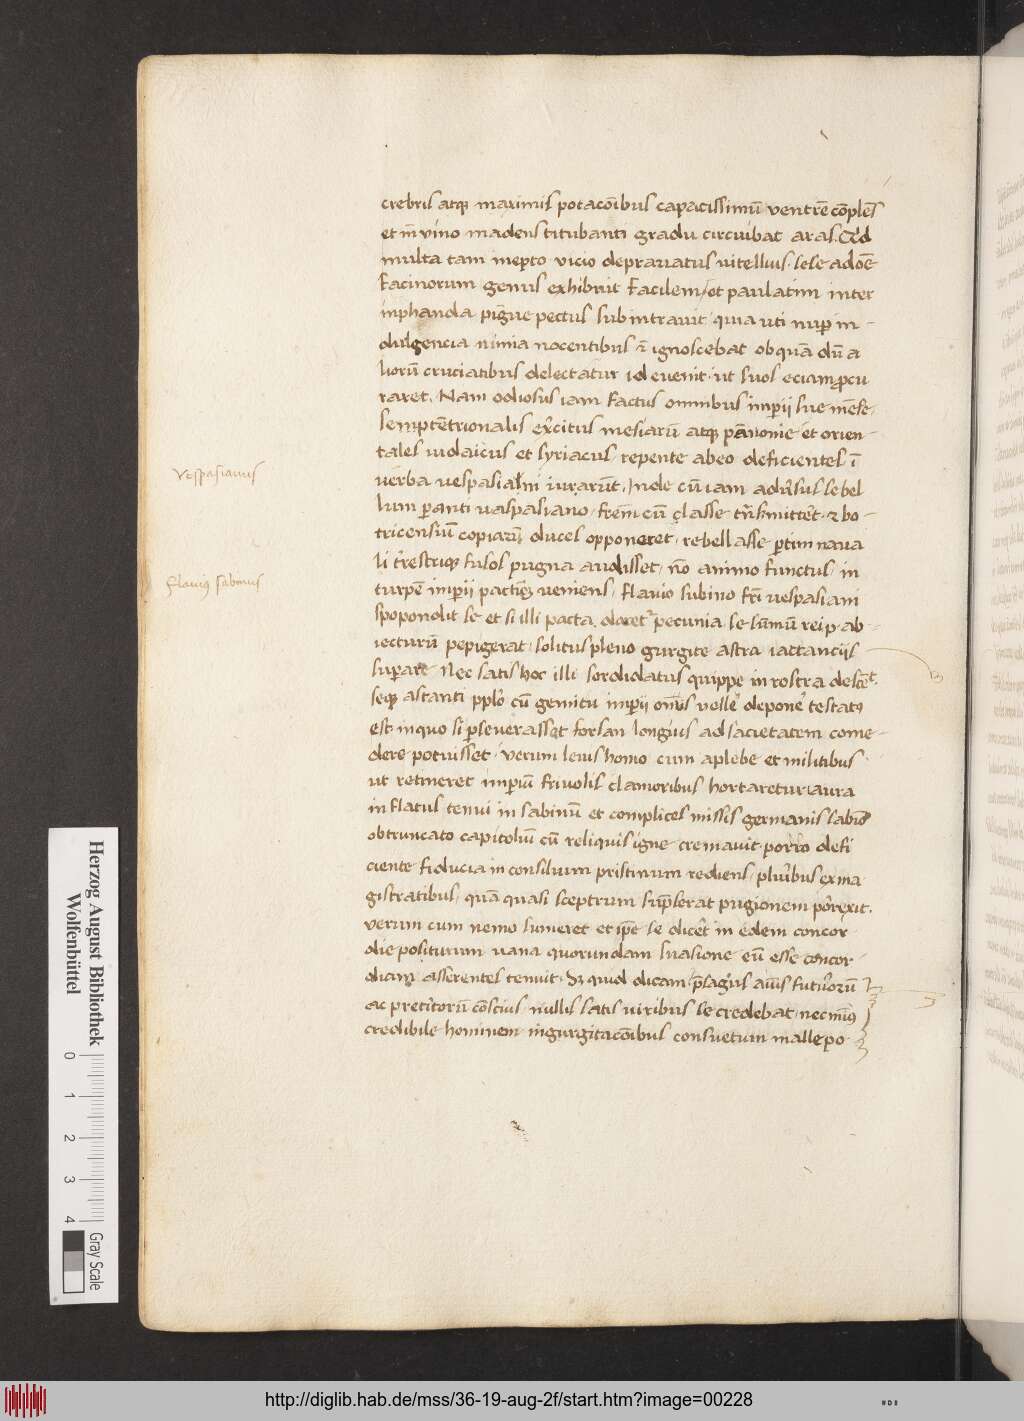 crebris atq; maximis potacõibus capacissimũ ventrẽ cõplẽs
et ĩ vino madens titubanti gradu circuibat aras. Ad
multa tam inepto vicio deprauatus uitellius. sese ad oẽ
Facinorum genus exhibuit Facilem, et paulatim inter
inphanda pĩgue pectus subintrauit. quia uti nup in-
dulgencia nimia nocentibus ignoscebat ob quã dũ a
liorũ cruciatibus delectatur id euenit. ut suos eciam pcu
raret. Nam odiosus iam Factus omnibus impij sue mẽse.
semptẽtrionalis exẽcitus mesiarũ atq; pãnonie et orien-
tales iudaicus et syriacus, repente ab eo deficientes ĩ
Vespasianus
uerba uespasiani iurarũt. Inde cũ iam adũsus se bel
lum panti uaspasiano, frẽm cũ classe trãsmittẽt. & bo-
tricensiũ copiarũ duces opponeret, rebellasse ptim naua
li trẽstriq; fusos pugna audisset, nõ animo functus, in
Flauiꝰ sabinus
turpẽ impij pactiõẽ ueniens, flauio subino frĩ uespasiani
spopondit se et si illi pacta. daret̃ pecunia se sũmũ reip. ab-
iecturũ pepigerat. solitus pleno gurgite astra iactancijs
supare Nec satis hoc illi sordidatus quippe in rostra descẽt.
seq; astanti pplo cũ gemitu impij onus uelle deponẽ testatꝰ
est. in quo si pseuerasset forsan longius ad sacietatem come-
dere potuisset. verum leuis homo cum a plebe et militibus
ut retineret impiũ friuolis clamoribus hortaretur. aura
inflatus tenui in sabinũ et complices missis germanis sabino
obtruncato capitoliũ cũ reliquis igne cremauit. porro defi
ciente fiducia in consilium pristinum rediens, pluribus ex ma
gistratibus, quã quasi sceptrum sũpserat pugionem porexit.
verum cum nemo sumeret et ipẽ se dicẽt in edem concor
die positurum uana quorundam suasione eũ esse concor-
diam asserentes tenuit. Sz quid dicam, psagus auis futurorũ
ac pretitorũ cõscius nullis satis uiribus se credebat. nec minꝰ
credibile hominem ingurgitacõibus consuetum malle po
Herzog August Bibliothek
Wolfenbüttel
0 1 2 3 4
Gray Scale
http://diglib.hab.de/mss/36-19-aug-2f/start.htm?image=00228